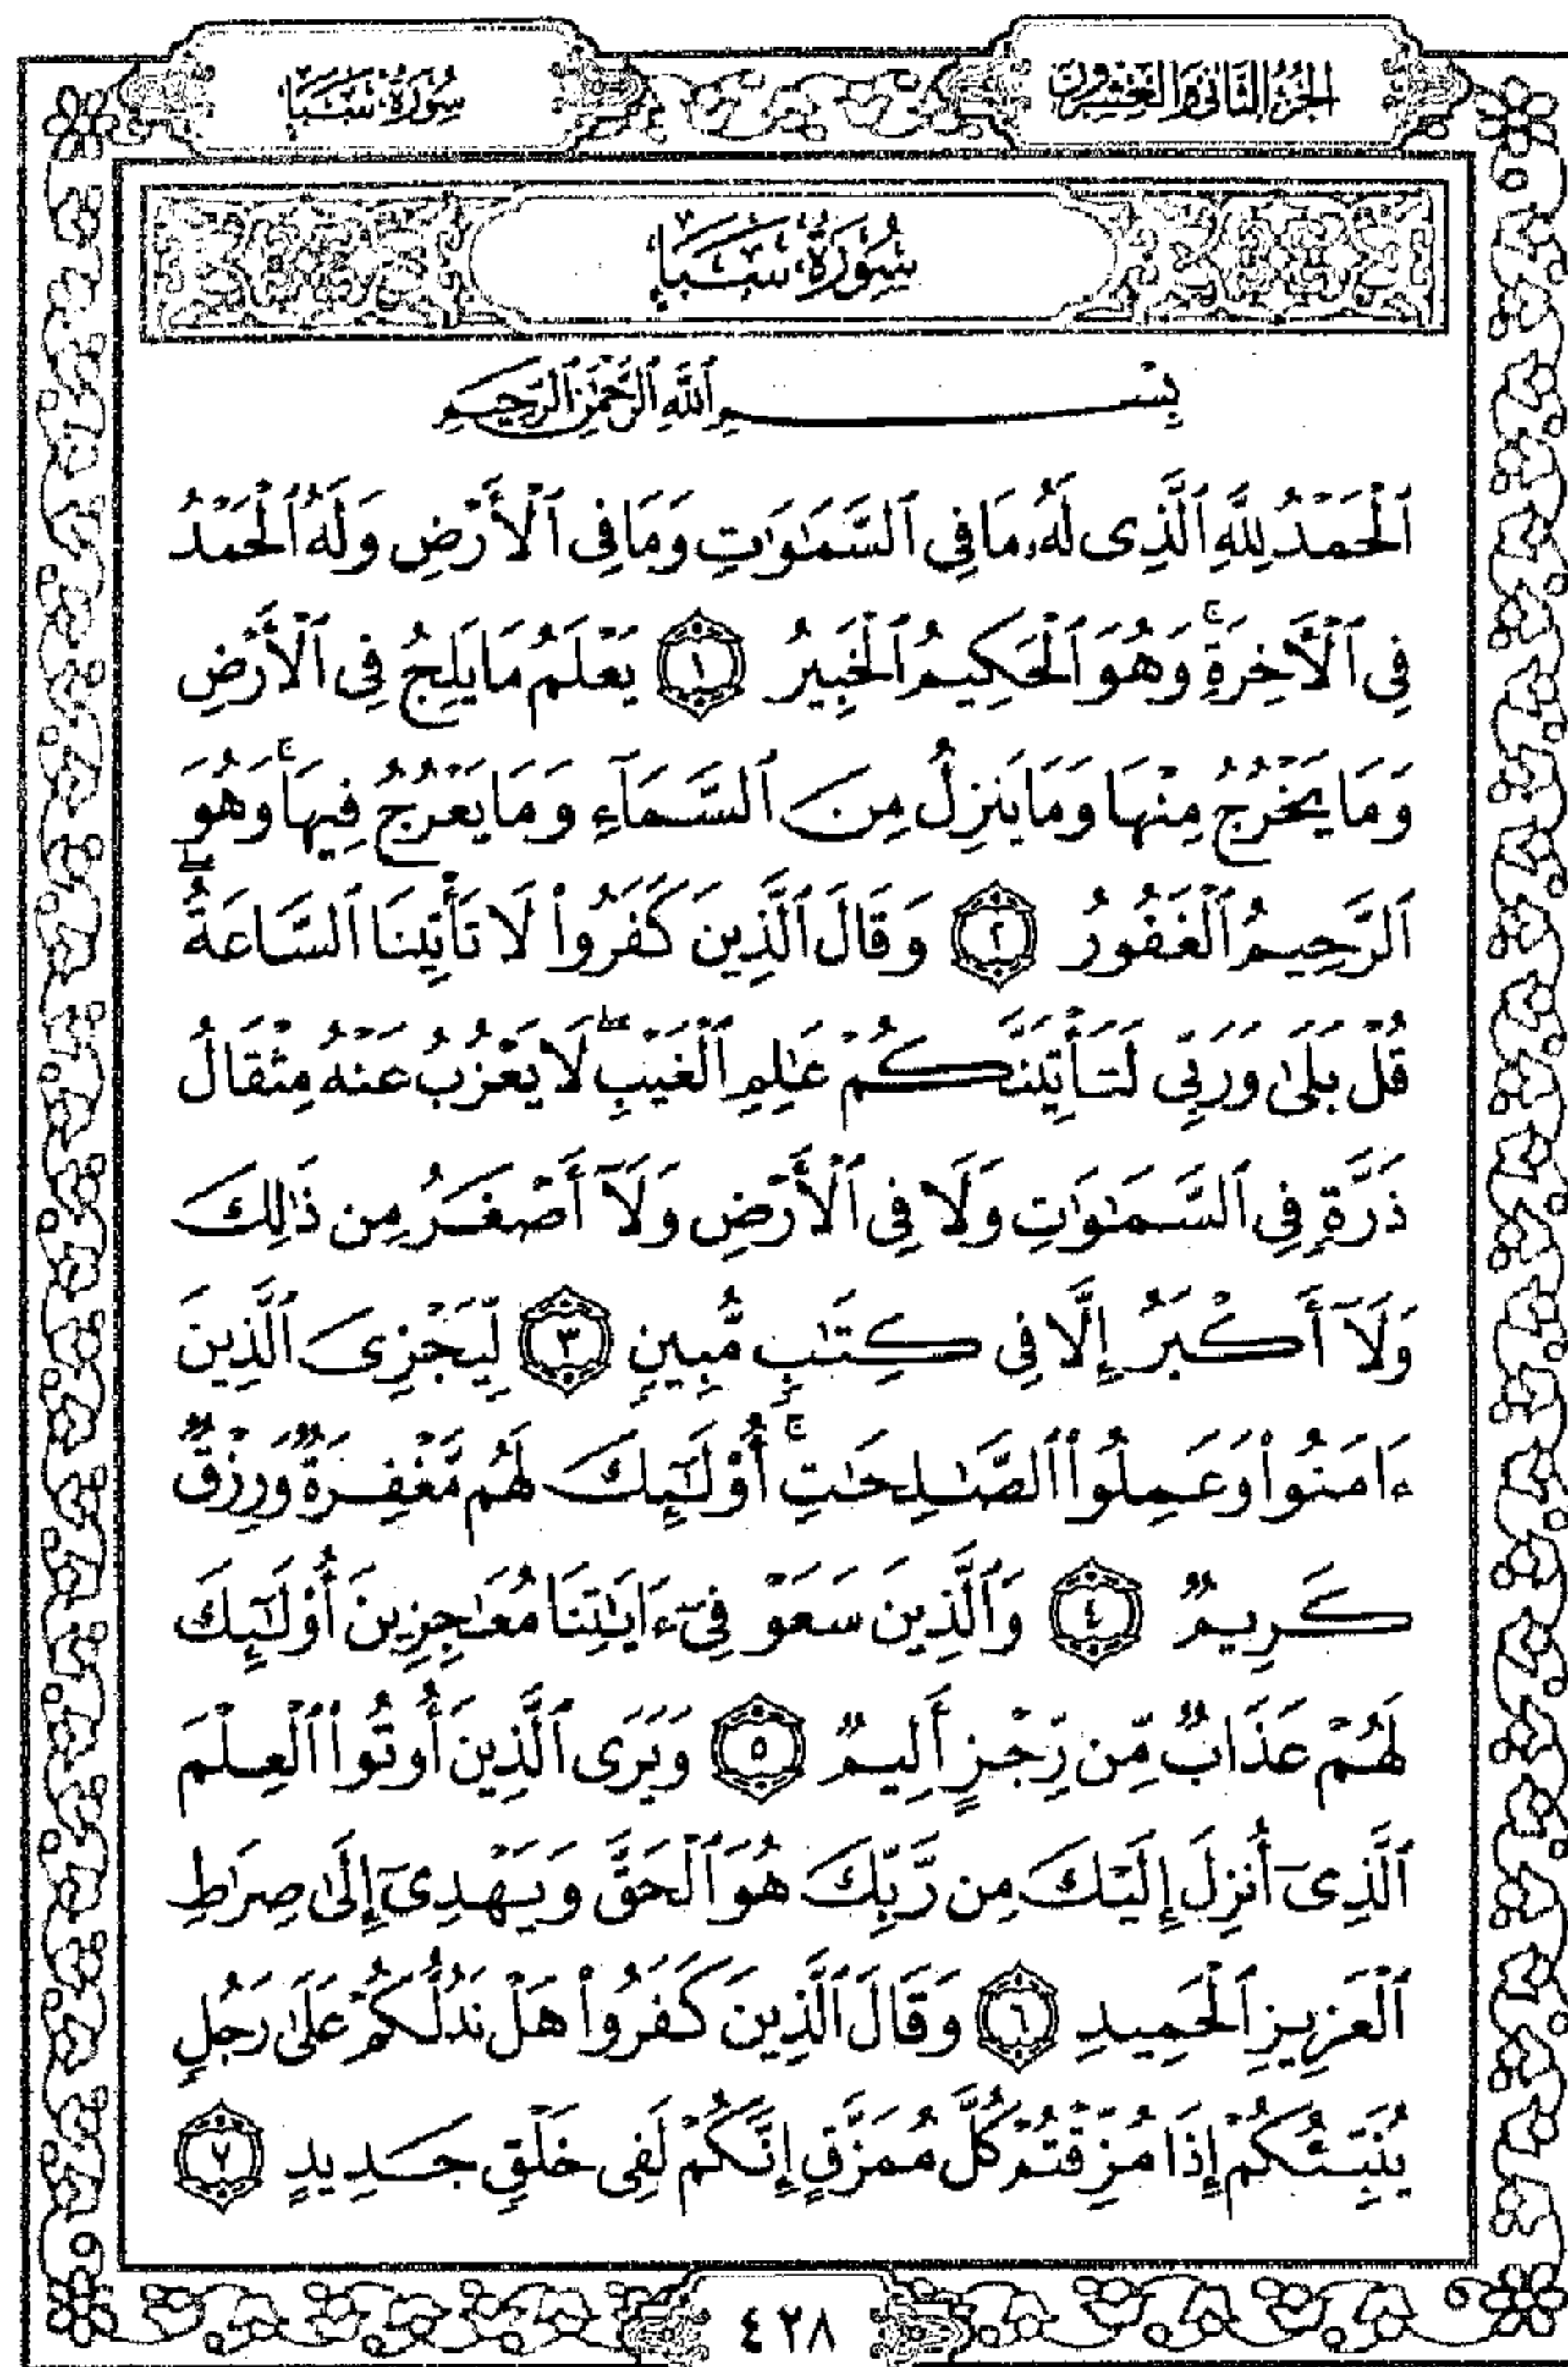 الجزء الثاني والعشرون
سُورَةُ سَبَإٍ
سُورَةُ سَبَإٍ
بِسْمِ ٱللَّهِ ٱلرَّحْمَٰنِ ٱلرَّحِيمِ
ٱلْحَمْدُ لِلَّهِ ٱلَّذِى لَهُۥ مَا فِى ٱلسَّمَٰوَٰتِ وَمَا فِى ٱلْأَرْضِ وَلَهُ ٱلْحَمْدُ
فِى ٱلْأَخِرَةِ ۚ وَهُوَ ٱلْحَكِيمُ ٱلْخَبِيرُ ١ يَعْلَمُ مَا يَلِجُ فِى ٱلْأَرْضِ
وَمَا يَخْرُجُ مِنْهَا وَمَا يَنزِلُ مِنَ ٱلسَّمَآءِ وَمَا يَعْرُجُ فِيهَا ۚ وَهُوَ
ٱلرَّحِيمُ ٱلْغَفُورُ ٢ وَقَالَ ٱلَّذِينَ كَفَرُوا۟ لَا تَأْتِينَا ٱلسَّاعَةُ ۖ
قُلْ بَلَىٰ وَرَبِّى لَتَأْتِيَنَّكُمْ عَٰلِمِ ٱلْغَيْبِ ۖ لَا يَعْزُبُ عَنْهُ مِثْقَالُ
ذَرَّةٍ فِى ٱلسَّمَٰوَٰتِ وَلَا فِى ٱلْأَرْضِ وَلَآ أَصْغَرُ مِن ذَٰلِكَ
وَلَآ أَكْبَرُ إِلَّا فِى كِتَٰبٍ مُّبِينٍ ٣ لِّيَجْزِىَ ٱلَّذِينَ
ءَامَنُوا۟ وَعَمِلُوا۟ ٱلصَّٰلِحَٰتِ ۚ أُو۟لَٰٓئِكَ لَهُم مَّغْفِرَةٌ وَرِزْقٌ
كَرِيمٌ ٤ وَٱلَّذِينَ سَعَوْ فِىٓ ءَايَٰتِنَا مُعَٰجِزِينَ أُو۟لَٰٓئِكَ
لَهُمْ عَذَابٌ مِّن رِّجْزٍ أَلِيمٌ ٥ وَيَرَى ٱلَّذِينَ أُوتُوا۟ ٱلْعِلْمَ
ٱلَّذِىٓ أُنزِلَ إِلَيْكَ مِن رَّبِّكَ هُوَ ٱلْحَقَّ وَيَهْدِىٓ إِلَىٰ صِرَٰطِ
ٱلْعَزِيزِ ٱلْحَمِيدِ ٦ وَقَالَ ٱلَّذِينَ كَفَرُوا۟ هَلْ نَدُلُّكُمْ عَلَىٰ رَجُلٍ
يُنَبِّئُكُمْ إِذَا مُزِّقْتُمْ كُلَّ مُمَزَّقٍ إِنَّكُمْ لَفِى خَلْقٍ جَدِيدٍ ٧
٤٢٨